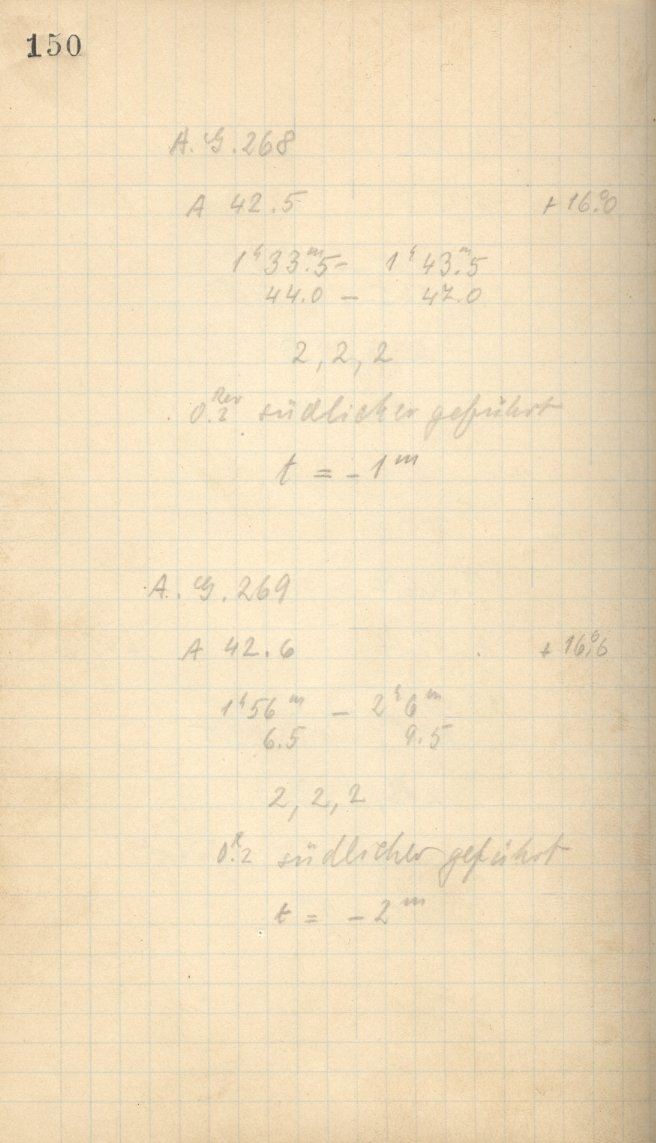 150
A. G. 268
A 42.5 +16.°0
1ʰ33.ᵐ5 – 1ʰ43.ᵐ5
44.0 – 47.0
2, 2, 2
0.ᴿᵉᵛ2 südlicher geführt
t = – 1ᵐ
A. G. 269
A 42.6 +16.°6
1ʰ56ᵐ – 2ʰ6ᵐ
6.5 9.5
2, 2, 2
0.ᴿ2 südlicher geführt
t = – 2ᵐ